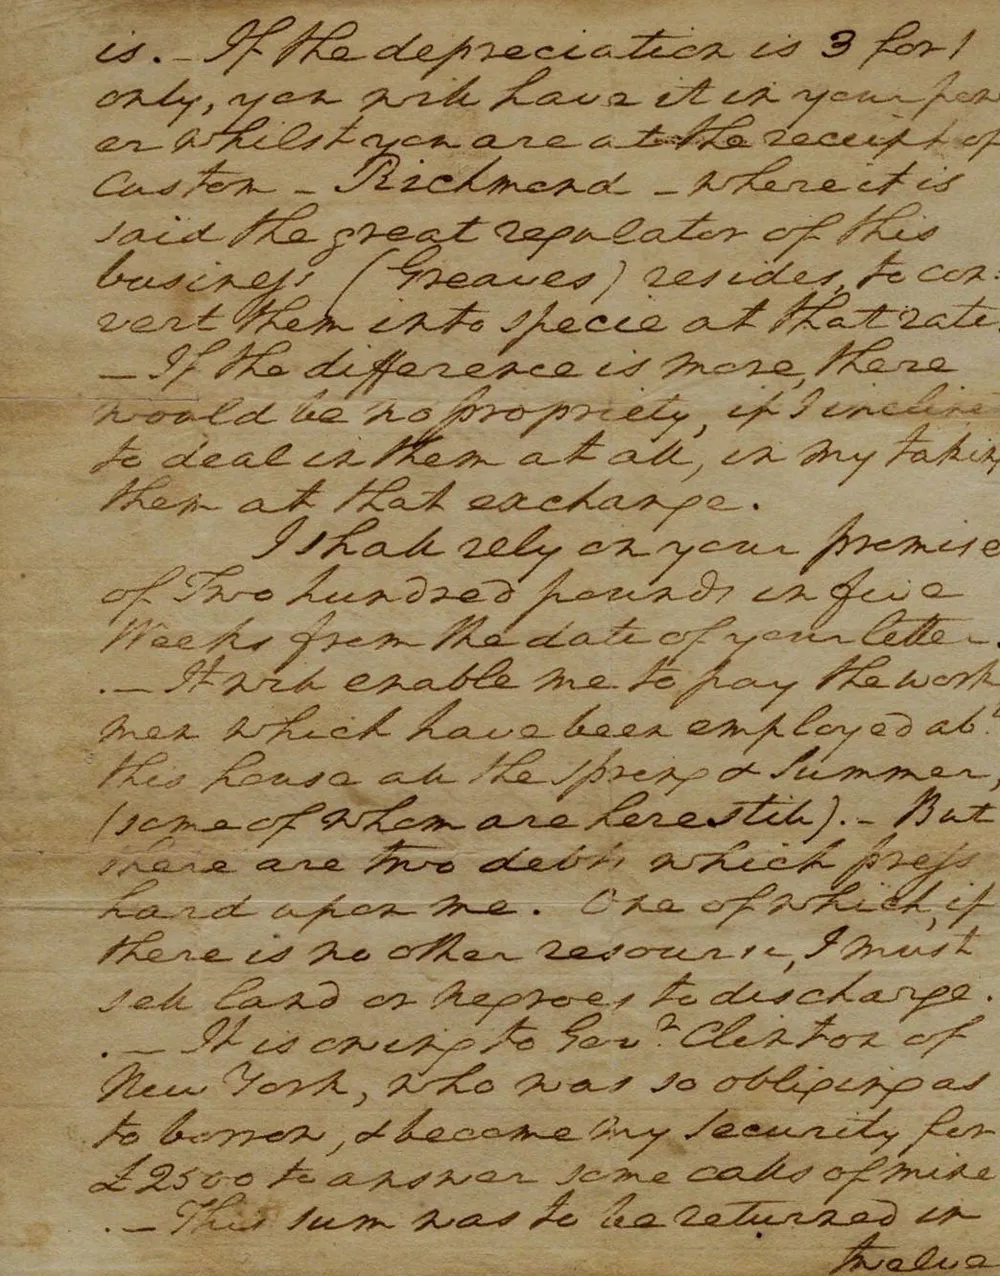 is. – If the depreciation is 3 for 1
only, you will have it in your pow
er whilst you are at the receipt of
Custom – Richmond – where it is
said the great regulator of this
business (Greaves) resides, to con:
vert them into specie at that rate.
– If the difference is more, there
would be no propriety, if I inclined
to deal in them at all, in my taking
them at that exchange.
I shall rely on your promise
of Two hundred pounds in five
Weeks from the date of your letter.
. – It will enable me to pay the work
men which have been employed abt
this house all the spring & Summer,
(some of whom are here still). – But
there are two debts which press
hard upon me. One of which, if
there is no other resource, I must
sell land or negroes to discharge.
. – It is owing to Govr Clinton of
New York, who was so obliging as
to borrow, & become my security for
£2500 to answer some calls of mine
. – This sum was to be returned in
twelve